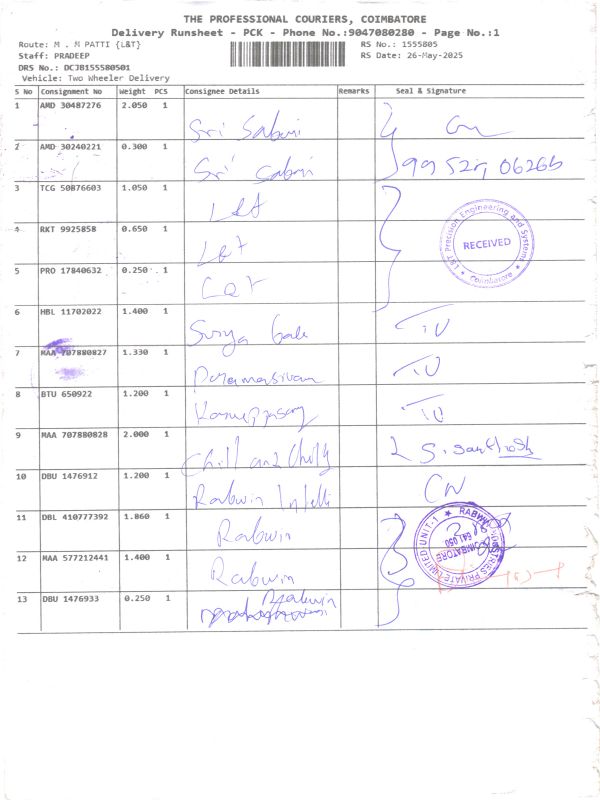 THE PROFESSIONAL COURIERS, COIMBATORE
Delivery Runsheet - PCK - Phone No.:9047080280 - Page No.:1
Route: M . M PATTI {L&T}
RS No.: 1555805
Staff: PRADEEP
RS Date: 26-May-2025
DRS No.: DCJB155580501
Vehicle: Two Wheeler Delivery
S No Consignment No Weight PCS Consignee Details Remarks Seal & Signature
1 AMD 30487276 2.050 1 Sri Sabari
2 AMD 30240221 0.300 1 Sri Sabari
3 TCG 50876603 1.050 1 L&T
4 RKT 9925858 0.650 1 L&T
L&T Precision Engineering and Systems
RECEIVED
Coimbatore
5 PRO 17840632 0.250 1 L&T
6 HBL 11702022 1.400 1 Surya
7 MAA 707880827 1.330 1 Paramasivam
8 BTU 650922 1.200 1
9 MAA 707880828 2.000 1 Chill and Chilly S. Santhosh
10 DBU 1476912 1.200 1 Rabwin
11 DBL 410777392 1.860 1 Rabwin
12 MAA 577212441 1.400 1 Rabwin
13 DBU 1476933 0.250 1 Rabwin